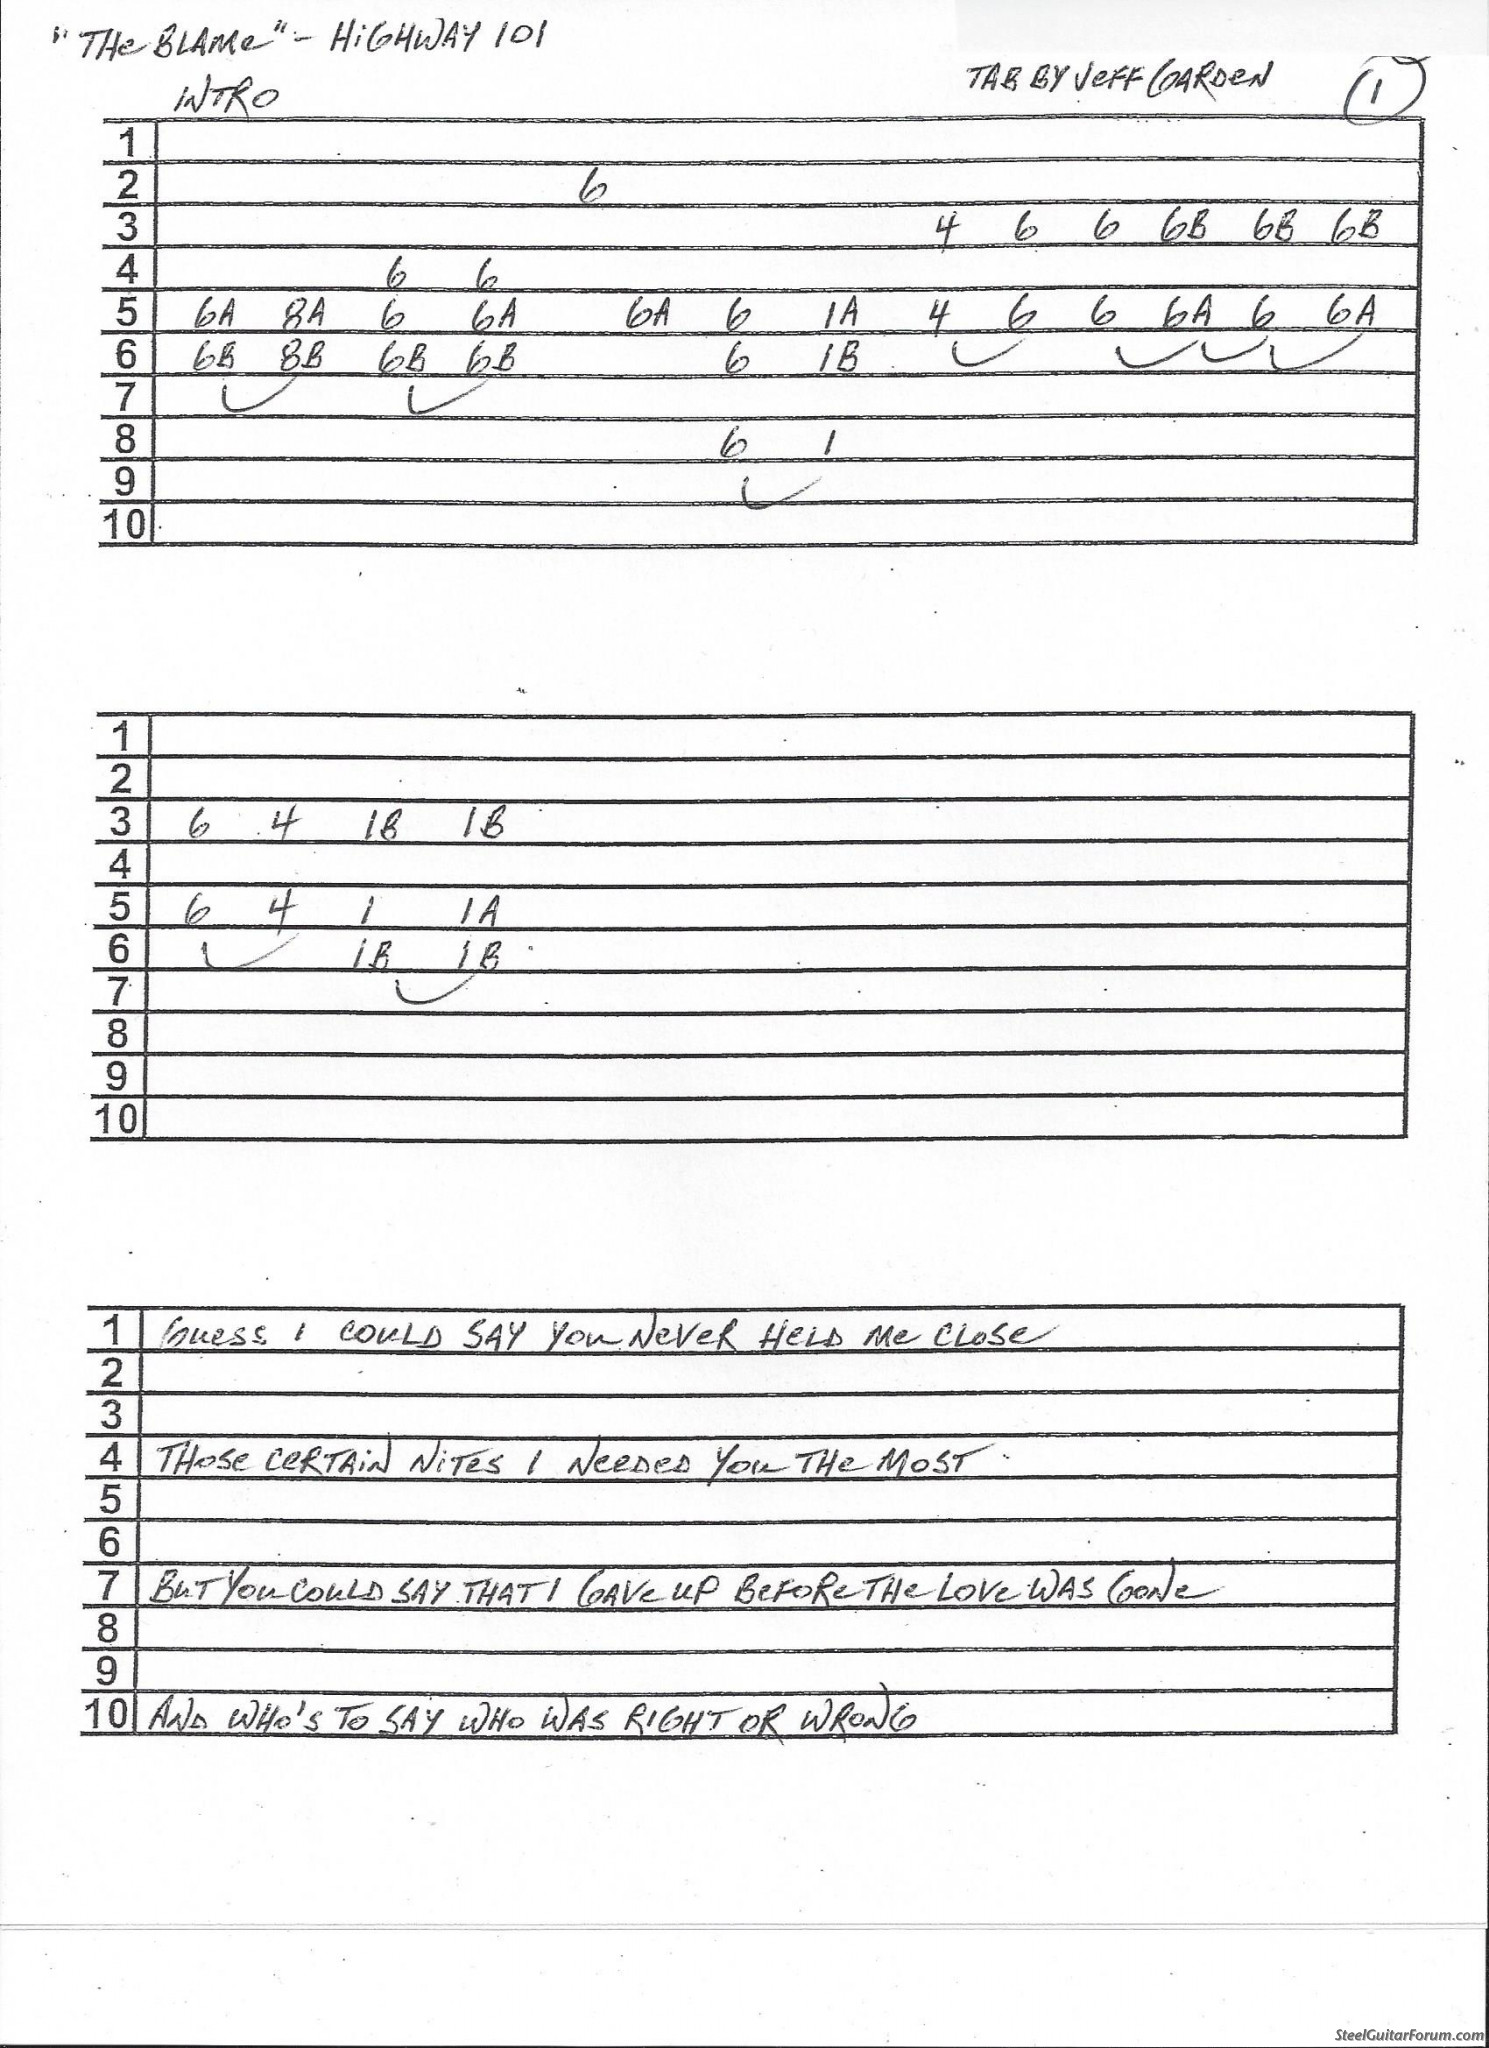 "THE BLAME" - HIGHWAY 101
TAB BY JEFF GARDEN 1
INTRO
1
2 6
3 4 6 6 6B 6B 6B
4 6 6
5 6A 8A 6 6A 6A 6 1A 4 6 6 6A 6 6A
6 6B 8B 6B 6B 6 1B
7
8 6 1
9
10
1
2
3 6 4 1B 1B
4
5 6 4 1 1A
6 1B 1B
7
8
9
10
1 GUESS I COULD SAY YOU NEVER HELD ME CLOSE
2
3
4 THOSE CERTAIN NITES I NEEDED YOU THE MOST
5
6
7 BUT YOU COULD SAY THAT I GAVE UP BEFORE THE LOVE WAS GONE
8
9
10 AND WHO'S TO SAY WHO WAS RIGHT OR WRONG
SteelGuitarForum.com